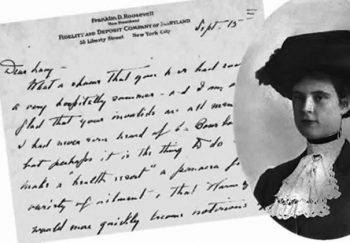 Franklin D. Roosevelt
Vice President
FIDELITY AND DEPOSIT COMPANY OF MARYLAND
55 Liberty Street New York City
Sept. 15
Dear
What a shame that your had
a very hospitally summer - and I am
glad that your invalids are all
I had never even heard of
but perhaps it is the thing to do
make a "health resort" a panacea
variety of ailments, & that "Warm
would more quickly become notorious